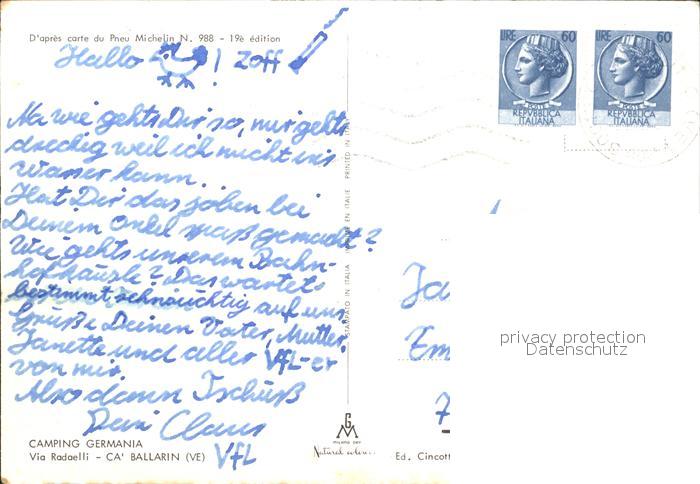 D'après carte du Pneu Michelin N. 988 - 19è édition
Hallo ! Zoff!
Na wie gehts Dir so, mir gehts
dreckig weil ich nicht ins
Wasser kann.
Hat Dir das joben bei
Deinem Onkel Spaß gemacht?
Wie gehts unserem Bahn-
hofkäusle? Das wartet
bestimmt sehnsüchtig auf uns
Grüße Deinen Vater, Mutter,
Janette und aller VfL-er
von mir.
Also dann Tschüß
Dein Claus
VfL
CAMPING GERMANIA
Via Radaelli - CA' BALLARIN (VE)
STAMPATO IN ITALIA
EN ITALIE
PRINTED IN
G
M
MILANO
Ed. Cincott
LIRE 60
POSTE
REPVBBLICA
ITALIANA
LIRE 60
POSTE
REPVBBLICA
ITALIANA
Ja
Em
7
privacy protection
Datenschutz